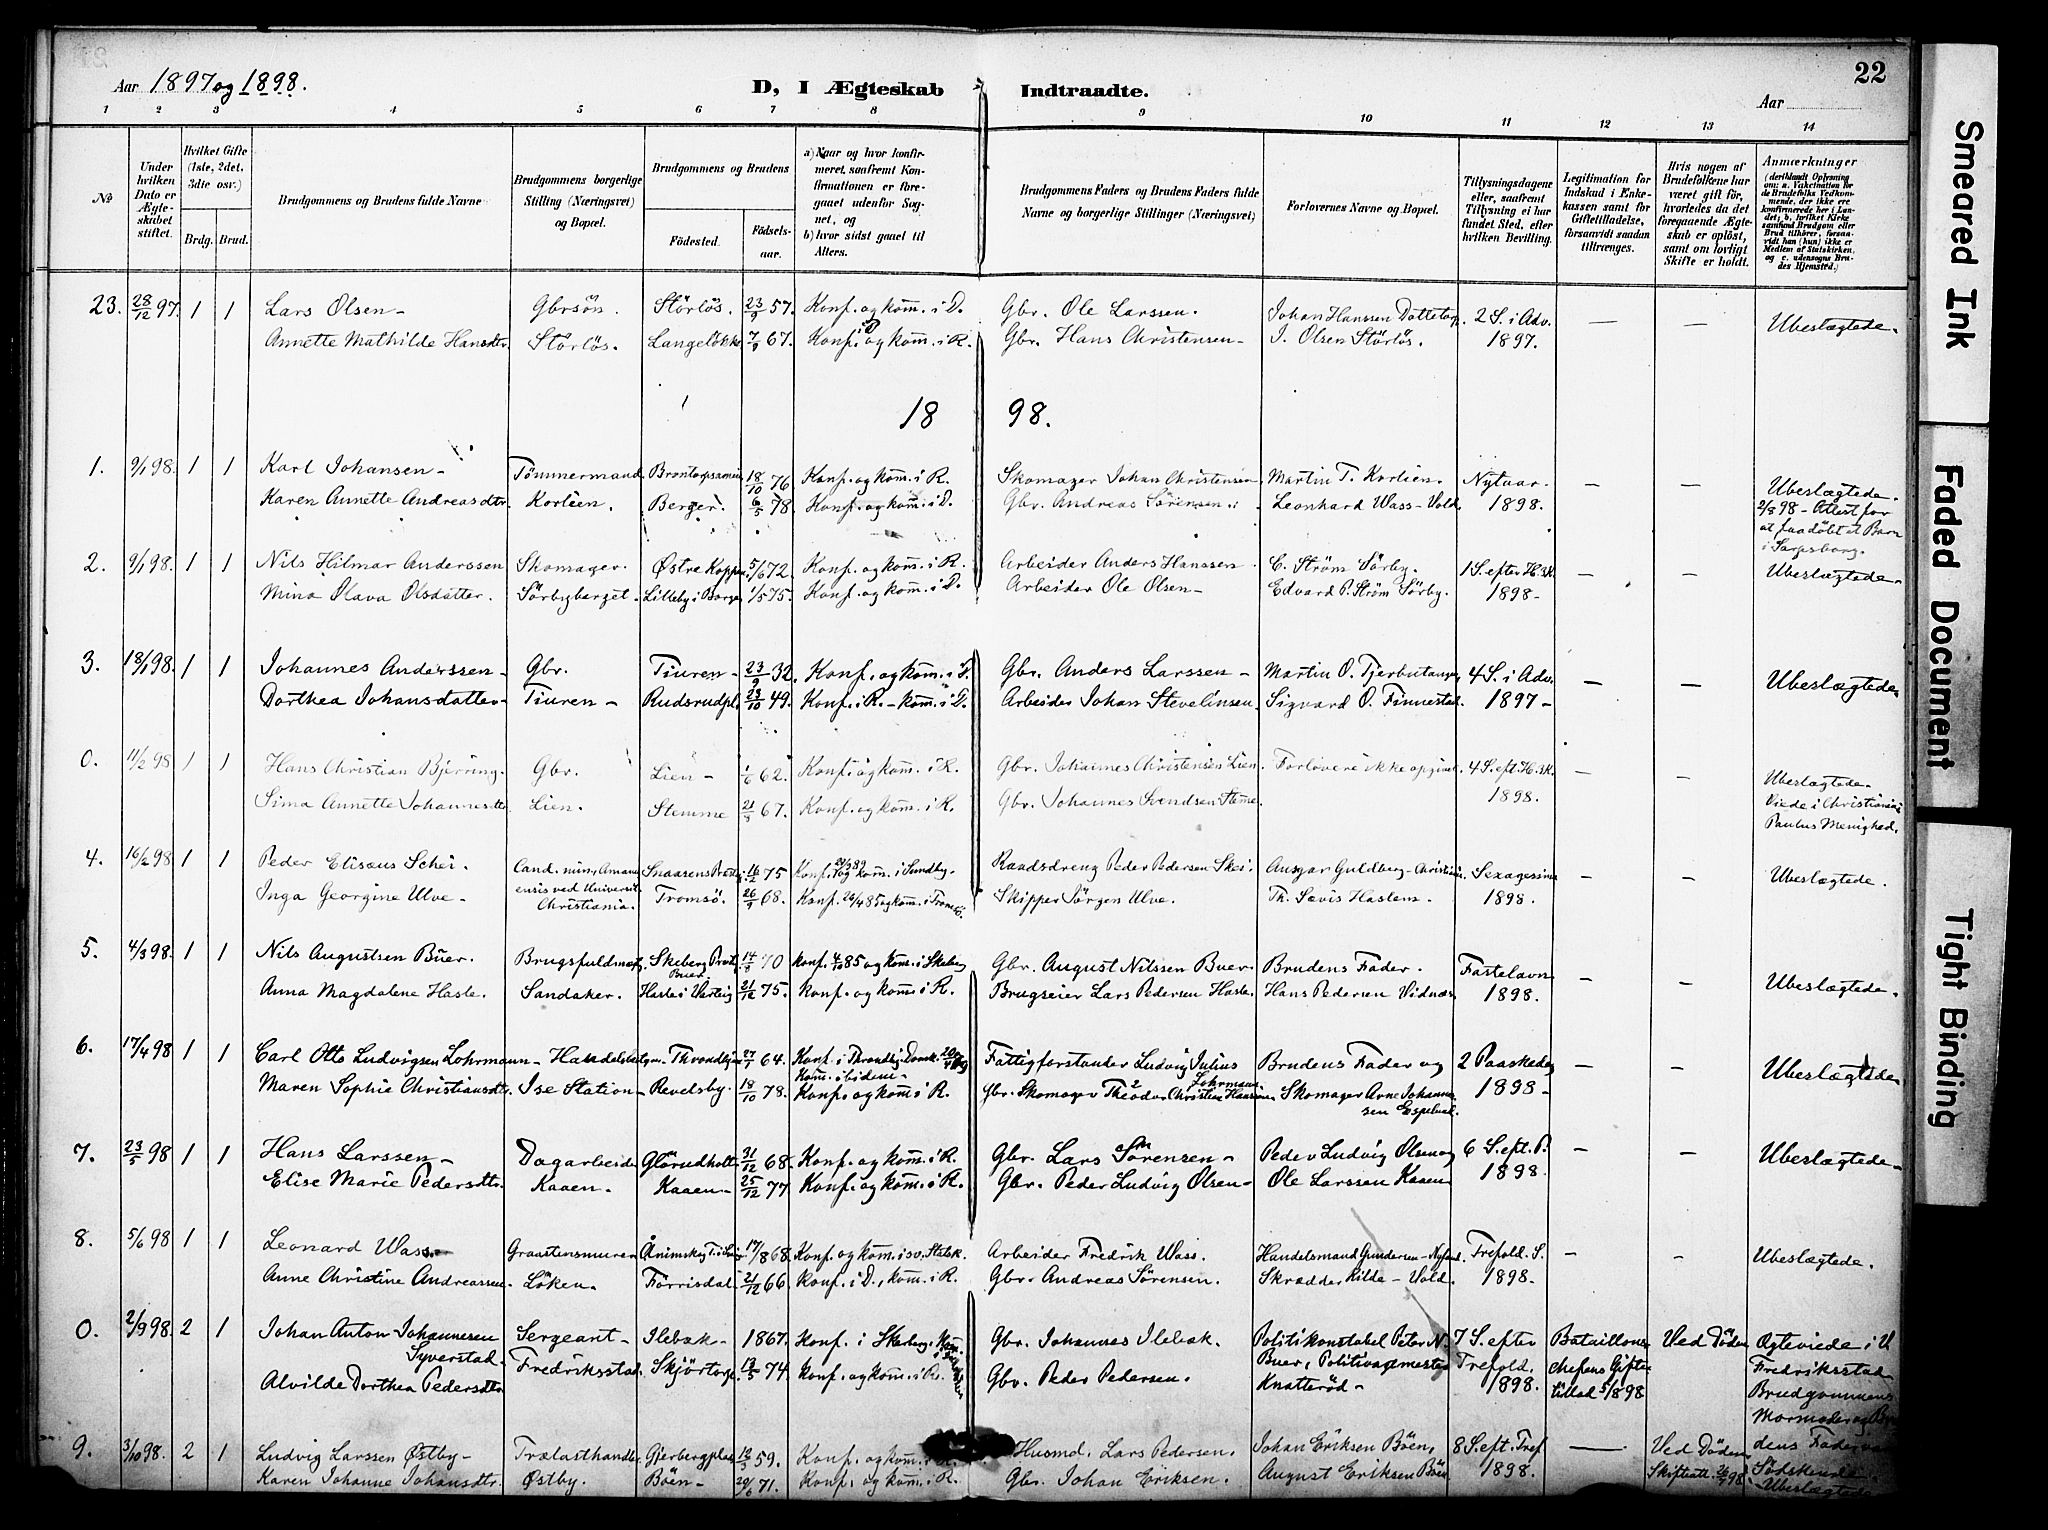 Aar 1897 og 1898.
D, I Ægteskab Indtraadte.
22
Aar
1 2 3 4 5 6 7 8 9 10 11 12 13 14
No
Under hvilken Dato er Ægteskabet stiftet.
Hvilket Gifte (1ste, 2det, 3die osv.)
Brdg. Brud.
Brudgommens og Brudens fulde Navne
Brudgommens borgerlige Stilling (Næringsvei) og Bopæl.
Brudgommens og Brudens
Födested. Födselsaar.
a) Naar og hvor konfirmeret, saafremt Konfirmationen er foregaaet udenfor Sognet, og
b) hvor sidst gaaet til Alters.
Brudgommens Faders og Brudens Faders fulde Navne og borgerlige Stillinger (Næringsvei)
Forlovernes Navne og Bopæl.
Tillysningsdagene eller, saafremt Tillysning ei har fundet Sted, efter hvilken Bevilling.
Legitimation for Indskud i Enkekassen samt for Giftetilladelse, forsaavidt saadan tiltrænges.
Hvis nogen af Brudefolkene har været gift för, hvorledes da det foregaaende Ægteskab er oplöst, samt om lovligt Skifte er holdt.
Anmærkninger (deriblandt Oplysning om: a. Vakcination for de Brudefolks Vedkommende, der ikke ere konfirmerede her i Landet; b. hvilket Kirkesamfund Brudgom eller Brud tilhörer, forsaavidt han (hun) ikke er Medlem af Statskirken, og c. udensogns Brudes Hjemsted.)
23. 28/12 97. 1 1 Lars Olsen - Gbrsön. Störlös. 23/9 57. Konf. og kom. i D. Gbr. Ole Larssen. Johan Hanssen 2 S. i Adv. — — Ubeslægtede.
Annette Mathilde Hansdtr. Störlös. Langelökke 7/9 67. Konf. i D og kom. i R. Gbr. Hans Christensen - J. Olsen Störlös. 1897.
18 98.
1. 9/1 98. 1 1 Karl Johansen - Tömmermand 18/10 76 Konf. og kom. i R. Skomager Johan Christensen Martin T. Korlien. Nytaar. — — Ubeslægtede.
Karen Annette Andreasdtr. Korlien. Berger. 6/5 78. Konf. og kom. i D. Gbr. Andreas Sörensen. Leonhard Wass - Vold. 1898. 2/8 98 - Attest for
at faa döbt et Barn
i Sarpsborg.
2. 9/1 98. 1 1 Nils Hilmar Anderssen Skomager. Østre 5/6 72. Konf. og kom. i R. Arbeider Anders Hanssen. C. Ström Sörby. 1 S. efter H.3K. — — Ubeslægtede.
Mina Olava Olsdatter. Sörbyberget. Lilleby i Borge 1/5 75. Konf. og kom. i D. Arbeider Ole Olsen - Edvard P. Ström Sörby. 1898 -
3. 18/1 98. 1 1 Johannes Anderssen - Gbr. Tiuren - 23/9 32. Konf. og kom. i D. Gbr. Anders Larssen - Martin O. 4 S. i Adv. — — Ubeslægtede
Dorthea Johansdatter - Tiuren - Rudsrudpl. 23/10 49. Konf. i R. - kom. i D. Arbeider Johan Stevelinsen. Sigvard O. Finnestad. 1897 -
0. 11/2 98 1 1 Hans Christian Bjerring. Gbr. Lien - 1/6 62. Konf. og kom. i R. Gbr. Johannes Christensen Lien. Forlovere ikke opgivet. 4 S. eft. H.3K. — — Ubeslægtede.
Sima Annette Johannesdtr. Lien. Stemme 67. Konf. og kom. i R. Gbr. Johannes Svendsen Stemme. 1898. Viede i Christiania
Paulus Menighed.
4. 16/2 98 1 1 Peder Elisæus Schei. Cand. min, Amanuensis ved Universit. Christiania. Snaasens 16/2 75 Konf. og kom. i Sundby. Raadsdreng Peder Pedersen Skei. Ansgar Guldberg - Christiania. Sexagesima — — Ubeslægtede.
Inga Georgine Ulve - Tromsö. 26/9 68. Konf. 26/4 85 og kom. i Tromsö. Skipper Jörgen Ulve. Th. Sævis Haslem. 1898.
5. 4/3 98. 1 1 Nils Augustsen Buer. Brugsfuldmæg. Skeberg Præstg. Buer 14/8 70 Konf. 4/10 85 og kom. i Skeberg Gbr. August Nilssen Buer. Brudens Fader. Fastelavn — — Ubeslægtede.
Anna Magdalene Hasle. Sandaker. Hasle i Varteig 21/12 75. Konf. og kom. i R. Brugseier Lars Pedersen Hasle. Hans Pedersen Vidnes. 1898.
6. 17/4 98 1 1 Carl Otto Ludvigsen Lohrmann - Handelsbetj. - Throndhjem 27/7 64. Konf. i Throndhj. Domk. kom. ibidem - Fattigforstander Ludvig Julius Lohrmann. Brudens Fader og 2 Paaskedag Ubeslægtede
Maren Sophie Christiansdtr. Ise Station - Revelsby. 18/10 78. Konf. og kom. i R. Gbr. Skomager Theodor Christian Hanssen Skomager Arne Johannessen Espelund. 1898 -
7. 23/5 98 1 1 Hans Larssen - Dagarbeider Glörudholt. 31/12 68. Konf. og kom. i R. Gbr. Lars Sörensen - Peder Ludvig Olsen og 6 S. eft. P. — — Ubeslægtede
Elise Marie Pedersdtr. Kaaen. Kaaen - 25/12 77 Konf. og kom. i R. Gbr. Peder Ludvig Olsen - Ole Larssen Kaaen 1898.
8. 5/6 98 1 1 Leonard Wass - Graastensmurer 17/8 68. Konf. og kom. i sv. Statsk. Arbeider Fredrik Wass. Handelsmand Gundersen - Trefold. S. — — Ubeslægtede.
Anne Christine Andreassen. Löken. Förrisdal. 21/12 66 Konf. i D., kom. i R. Gbr. Andreas Sörensen. Skrædder Kilde - Vold. 1898 -
0. 2/9 98. 2 1 Johan Anton Johannesen Syverstad - Sergeant - Ilebæk - 1867. Konf. i Skeberg. Gbr. Johannes Ilebæk. Politikonstabel Peter N. Buer, Politivagtmester Knatteröd - 7 S. efter Trefold. 1898. Bataillonschefens Giftetillad. 5/8 98 Ved Döden Ogteviede i V
Alvilde Dorthea Pedersdtr. Fredriksstad. Skjörtorp. 13/5 74. Konf. og kom. i R. Gbr. Peder Pedersen. Fredriksstad
Brudgommens
Mormoder og Bru
dens Fader var
Södskende.
9. 3/10 98. 2 1 Ludvig Larssen Østby - Trælasthandler Gjerbergplads 12/3 59. Konf. og kom. i R. Husmd. Lars Pedersen. Johan Eriksen Böen, 8 S. eft. Tref. — Ved Döden
Karen Johanne Johansdtr. Østby. Böen - 20/6 71. Konf. og kom. i R. Gbr. Johan Eriksen. August Eriksen Böen 1898. Skifteatt. 26/7 98 Ubeslægtede
Smeared Ink
Faded Document
Tight Binding